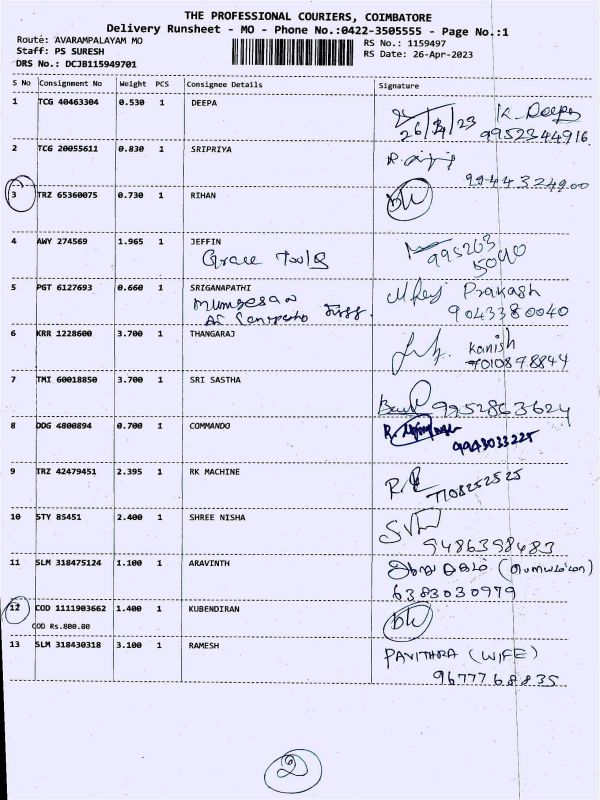 THE PROFESSIONAL COURIERS, COIMBATORE
Delivery Runsheet - MO - Phone No.:0422-3505555 - Page No.:1
Route: AVARAMPALAYAM MO
RS No.: 1159497
Staff: PS SURESH
RS Date: 26-Apr-2023
DRS No.: DCJB115949701
S No Consignment No Weight PCS Consignee Details Signature
1 TCG 40463304 0.530 1 DEEPA
K. Deepa
26/4/23 9952344916
2 TCG 20055611 0.830 1 SRIPRIYA
9944324900
3 TRZ 65360075 0.730 1 RIHAN
4 AWY 274569 1.965 1 JEFFIN
Grace Tools
995263
5040
5 PGT 6127693 0.660 1 SRIGANAPATHI
Murugesan
Prakash
9043380040
6 KRR 1228600 3.700 1 THANGARAJ
Kanish
7010898844
7 TMI 60018850 3.700 1 SRI SASTHA
9952863624
8 DDG 4800894 0.700 1 COMMANDO
9943033225
9 TRZ 42479451 2.395 1 RK MACHINE
7708252525
10 STY 85451 2.400 1 SHREE NISHA
9486398483
11 SLM 318475124 1.100 1 ARAVINTH
6383030979
12 COD 1111903662 1.400 1 KUBENDIRAN
COD Rs.800.00
13 SLM 318430318 3.100 1 RAMESH
PAVITHRA (WIFE)
9677768835
2